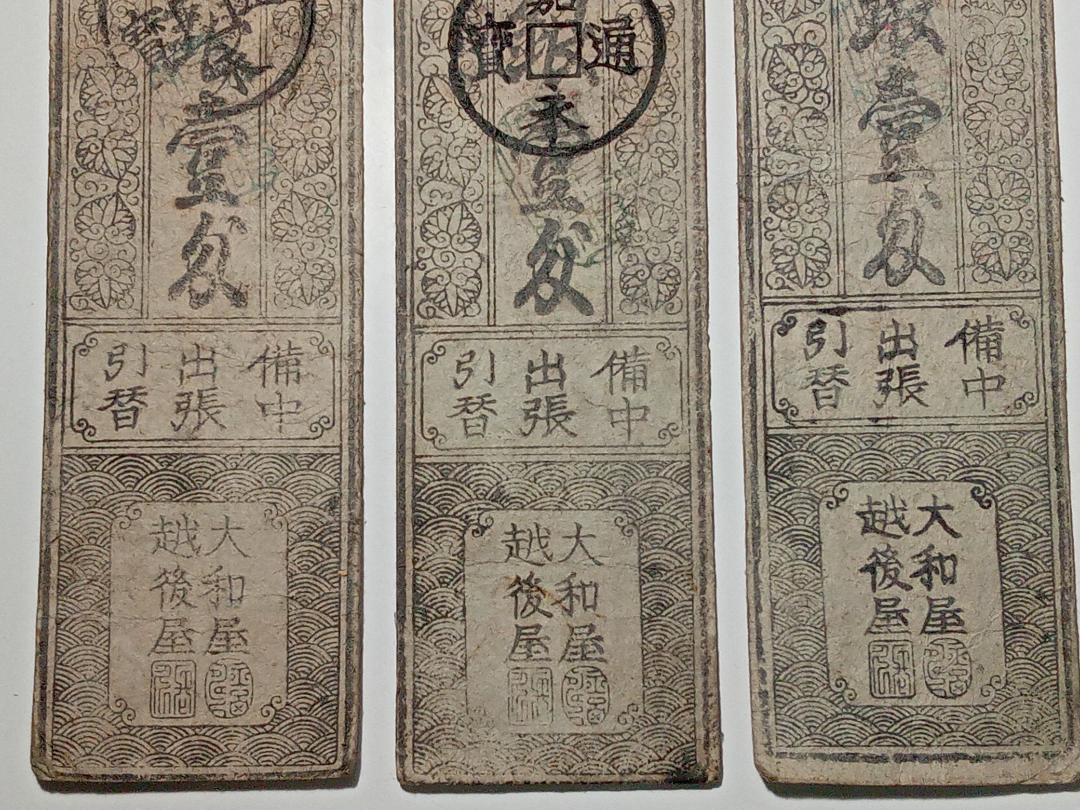 壹匁
備中
出張
引替
大和屋
越後屋
通
寳
永
壹匁
備中
出張
引替
大和屋
越後屋
壹匁
備中
出張
引替
大和屋
越後屋